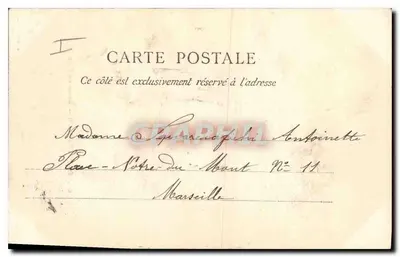 I
CARTE POSTALE
Ce côté est exclusivement réservé à l'adresse
Madame Antoinette
Place - Notre-du Mont No 11
Marseille